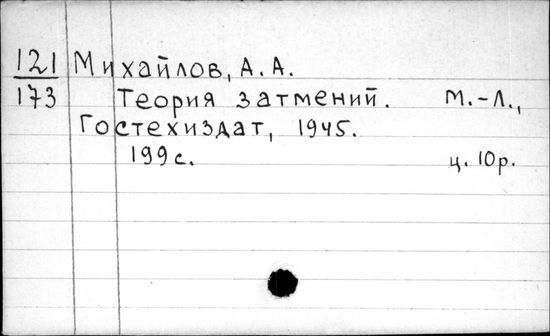 121 Михайлов, А. А.
173 Теория затмений. М.-Л.,
Гостехиздат, 1945.
199 с. ц. 10 р.